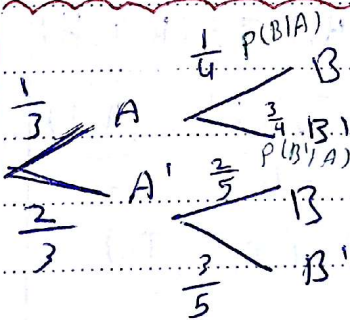 1/4 P(B|A) B
1/3 A 3/4 B'
P(B'|A)
A' 2/5 B
2/3
3/5 B'